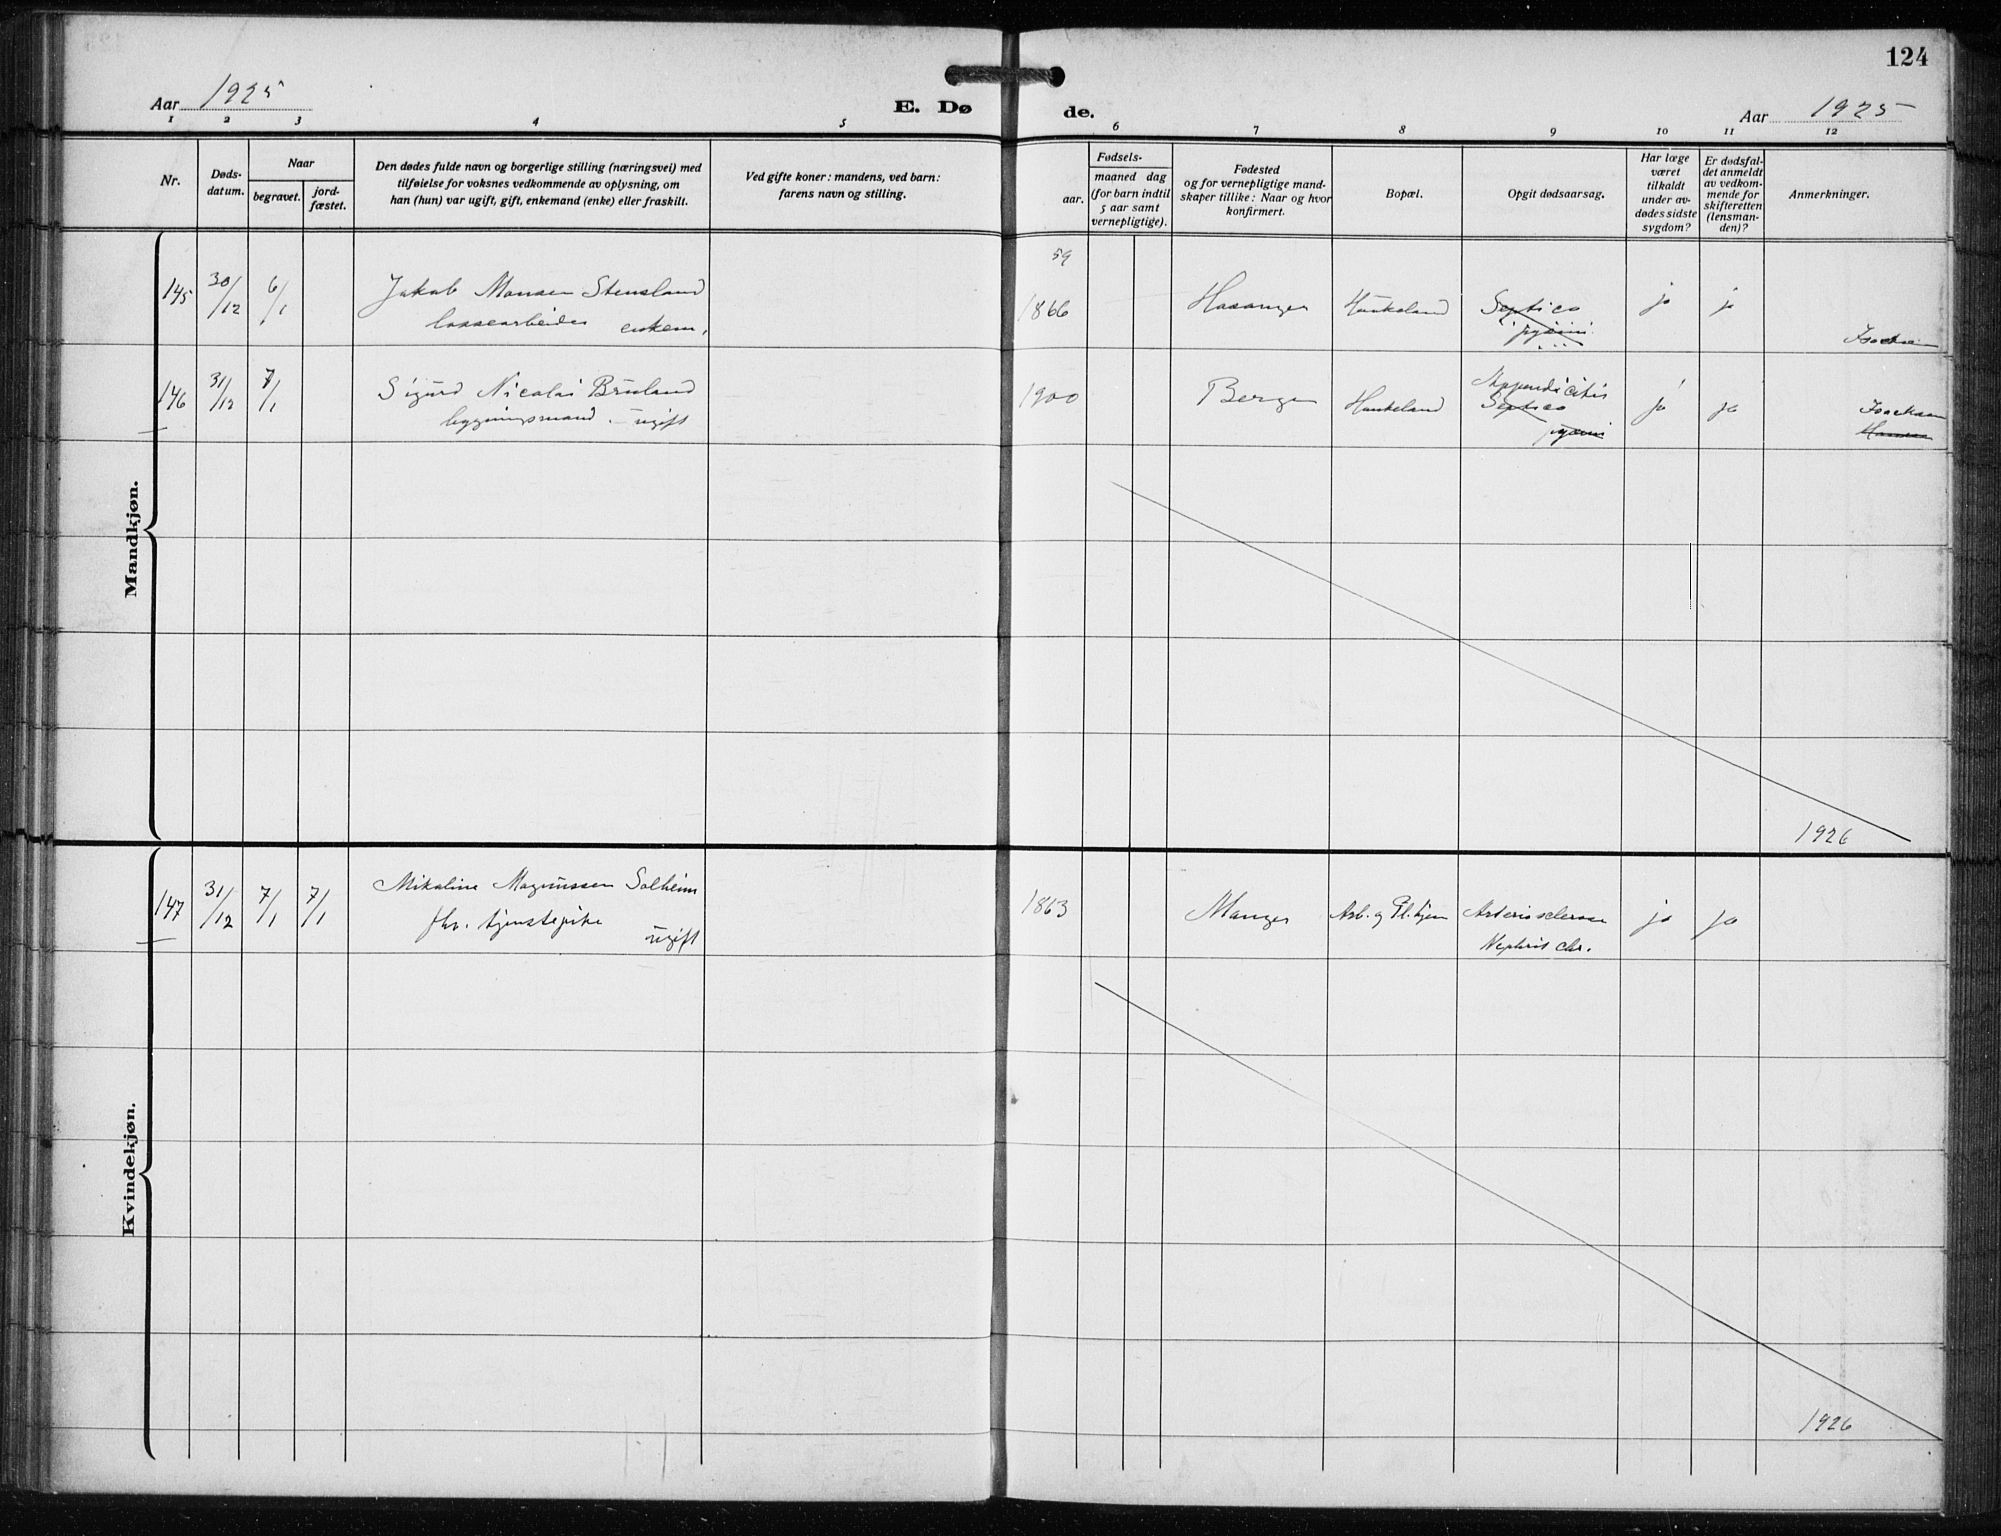 124
Aar 1925
E. Dø de.
Aar 1925
1 2 3 4 5 6 7 8 9 10 11 12
Nr.
Døds-
datum.
Naar
begravet.
jord-
fæstet.
Den dødes fulde navn og borgerlige stilling (næringsvei) med
tilføielse for voksnes vedkommende av oplysning, om
han (hun) var ugift, gift, enkemand (enke) eller fraskilt.
Ved gifte koner: mandens, ved barn:
farens navn og stilling.
Fødsels-
aar.
maaned dag
(for barn indtil
5 aar samt
vernepligtige).
Fødested
og for vernepligtige mand-
skaper tillike: Naar og hvor
konfirmert.
Bopæl.
Opgit dødsaarsag.
Har læge
været
tilkaldt
under av-
dødes sidste
sygdom?
Er dødsfal-
det anmeldt
av vedkom-
mende for
skifteretten
(lensman-
den)?
Anmerkninger.
Mandkjøn.
59
145 30/12 6/1 Jakob Monsen Stensland 1866 Haukeland Septico ja ja
enkem.
pyæmi
146 31/12 7/1 Sigurd Nicolai Bruland 1900 Bergen Haukeland Appendicitis ja ja Isachsen
bygningsmand - ugift
Septico
pyæmi
1926
Kvindekjøn.
147 31/12 7/1 7/1 Mikaline Magnussen Solheim 1863 Manger Arb. og Pl.hjem Arteriosclerose ja ja
fhv. tjenstepike ugift
Nephrit chr.
1926